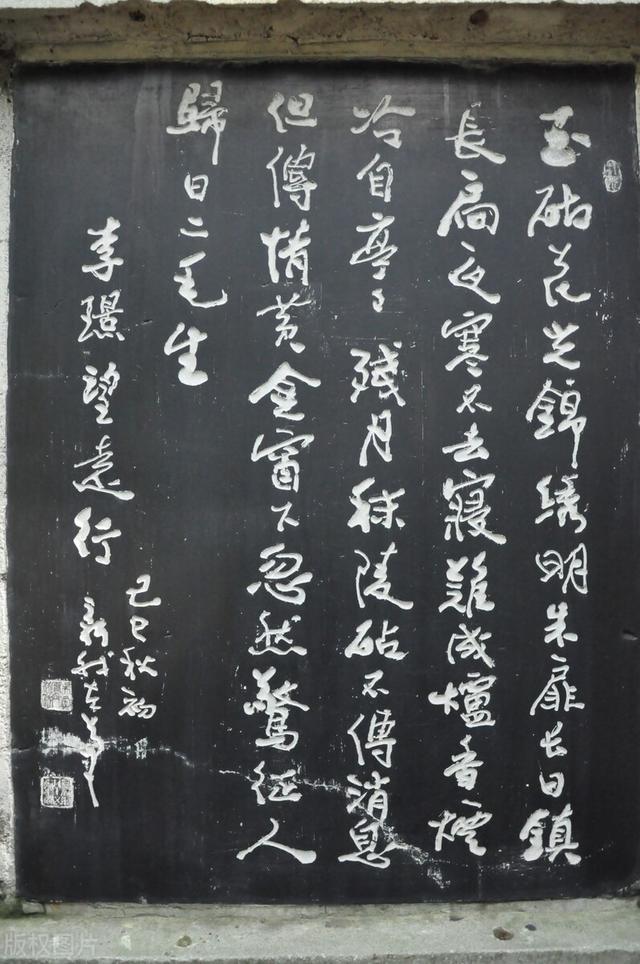 玉砌花光錦绣明朱扉长日鎮
長扃夜寒不去寢難成爐香煙
冷自亭々殘月秣陵砧不傳消息
但傳情黄金窗下忽然驚征人
歸日二毛生
李璟望遠行
己巳秋初
新我左筆
版权图片